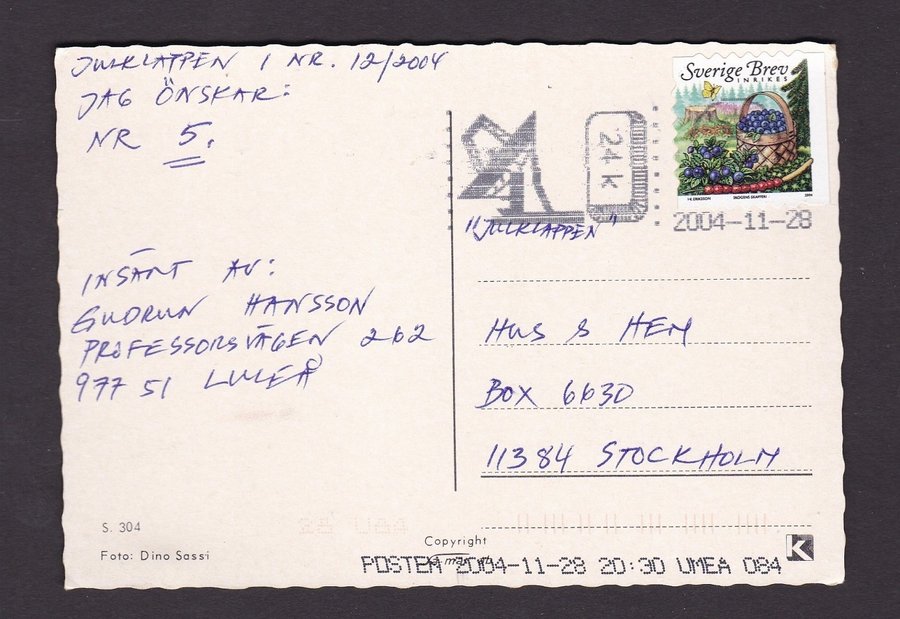 JULKLAPPEN I NR. 12/2004
JAG ÖNSKAR:
NR 5.
INSÄNT AV:
GUDRUN HANSSON
PROFESSORSVÄGEN 262
977 51 LULEÅ
S. 304
Foto: Dino Sassi
Sverige Brev
INRIKES
SKOGENS SKAFFERI
2004
24 k
2004-11-28
"JULKLAPPEN"
HUS & HEM
BOX 6630
11384 STOCKHOLM
Copyright
K
POSTEN 2004-11-28 20:30 UMEA 084